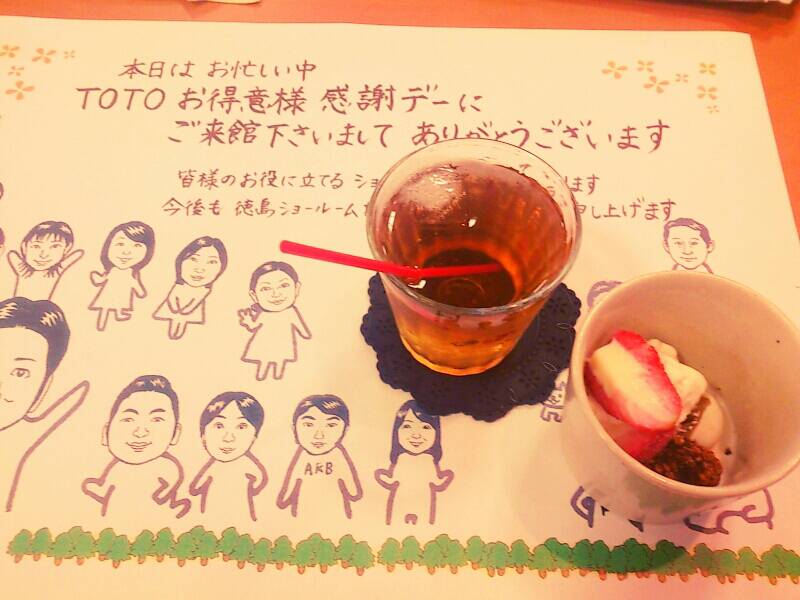 本日は お忙しい中
TOTO お得意様 感謝デーに
ご来館下さいまして ありがとうございます
皆様のお役に立てる ショ ます
今後も 徳島ショールーム 申し上げます
AKB